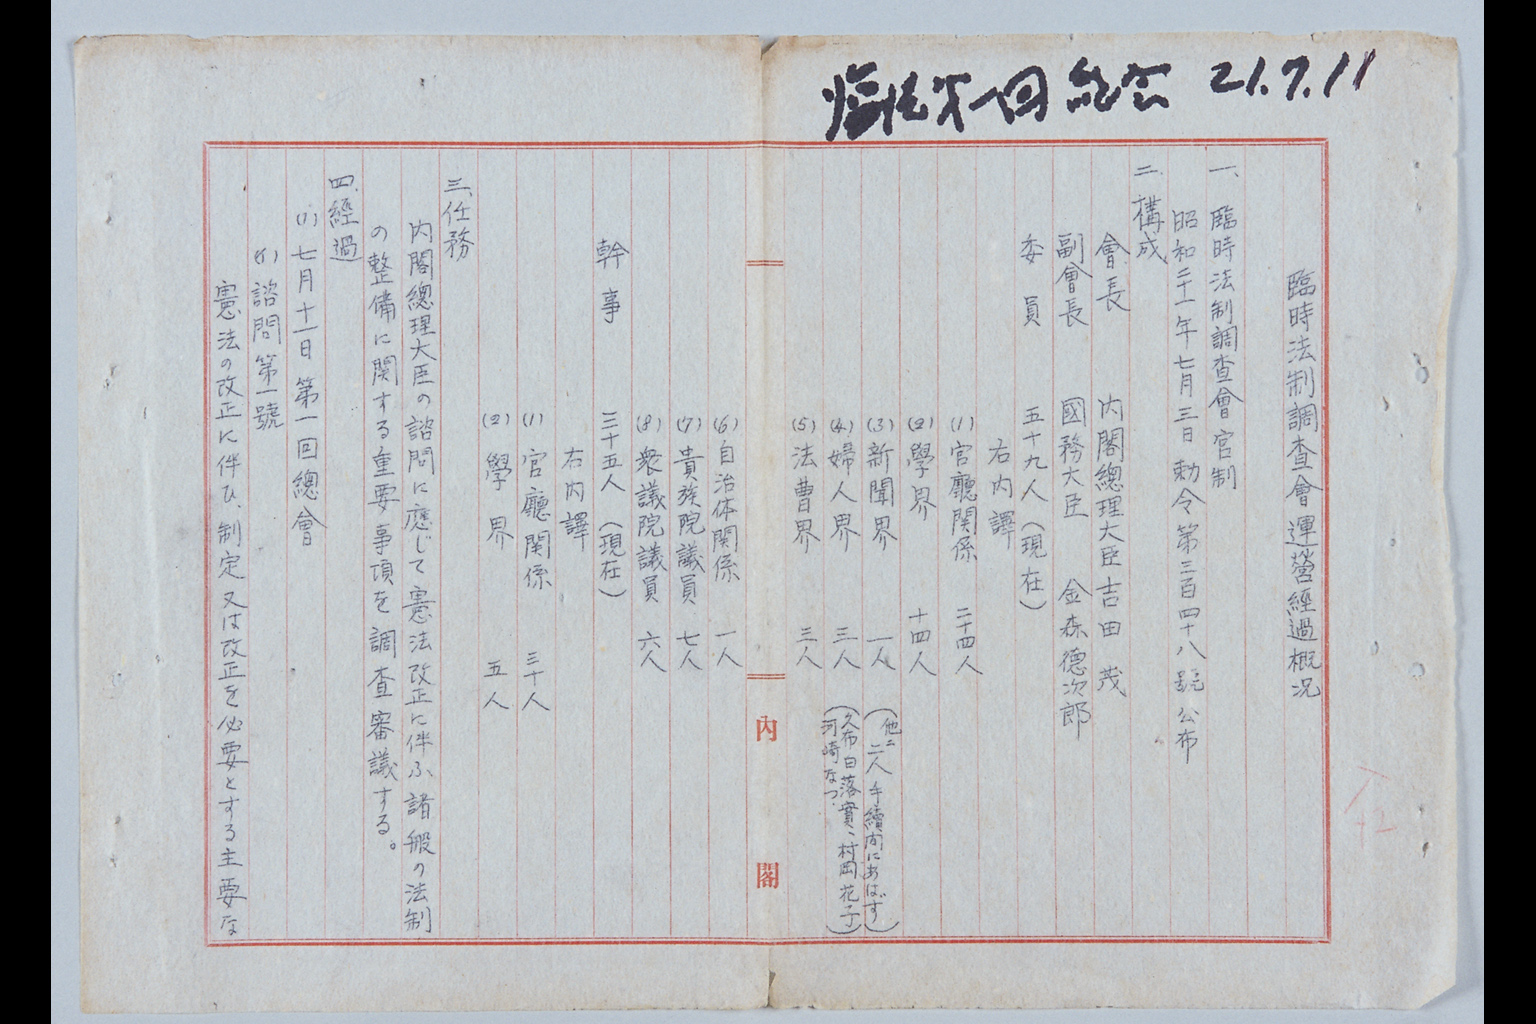 臨法第一回総会 21.7.11
臨時法制調査會運営経過概况
一、臨時法制調査會官制
昭和二十一年七月三日勅令第三百四十八號公布
二、構成
會長 内閣總理大臣吉田 茂
副會長 國務大臣 金森德次郎
委員 五十九人(現在)
右内譯
(1)官廳関係 二十四人
(2)學界 十四人
(3)新聞界 一人 (他ニ二人手續中におはず)
(4)婦人界 三人 (久布白落實、村岡花子
河崎なつ)
(5)法曹界 三人
(6)自治体関係 一人
(7)貴族院議員 七人
(8)衆議院議員 六人
幹事 三十五人(現在)
右内譯
(1)官廳関係 三十人
(2)學界 五人
三、任務
内閣總理大臣の諮問に應じて憲法改正に伴ふ諸般の法制
の整備に関する重要事項を調査審議する。
四、經過
(1)七月十一日第一回總會
(イ)諮問第一號
憲法の改正に伴ひ、制定又は改正を必要とする主要な
内閣